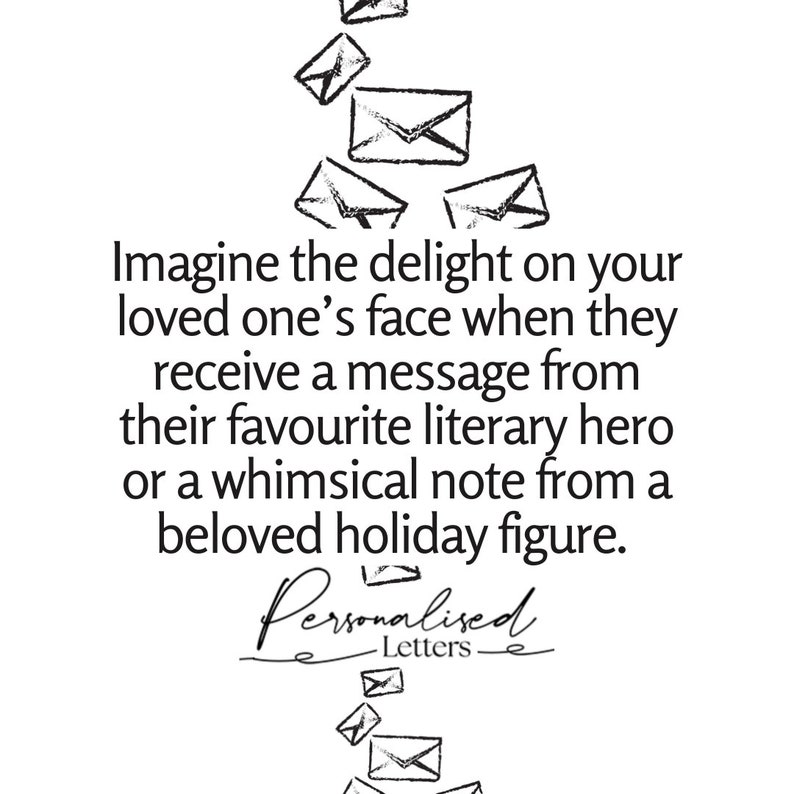 Imagine the delight on your
loved one’s face when they
receive a message from
their favourite literary hero
or a whimsical note from a
beloved holiday figure.
Personalised
Letters